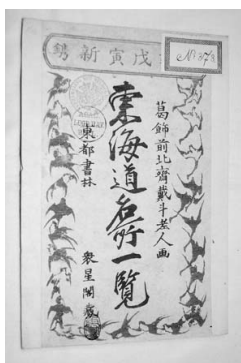 戊寅新鐫
No 373
葛飾前北齋戴斗老人画
東海道名所一覧
東都書林
衆星閣